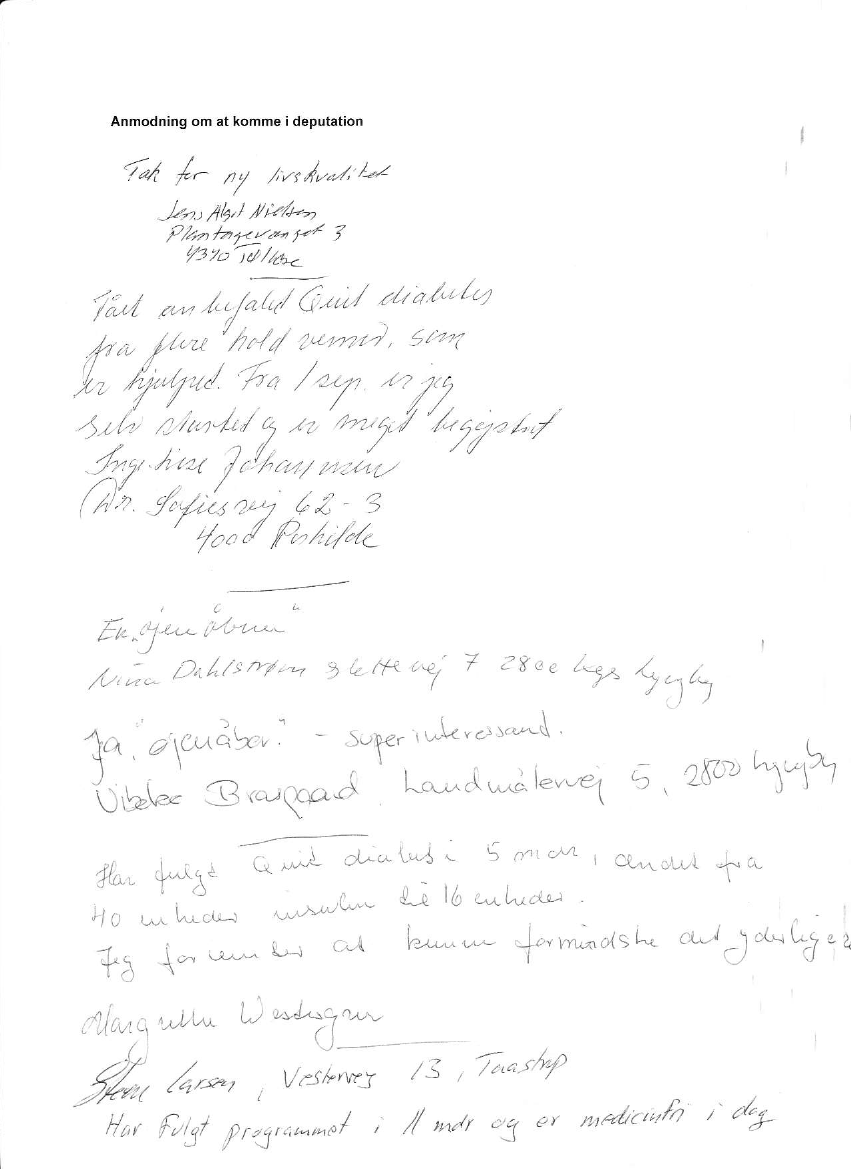 Anmodning om at komme i deputation
Tak for ny livskvalitet
Jens Nielsen
Plantagevænget 3
4370
Fået anbefalet Quit diabetes
fra flere hold venner, som
er hjulpet. Fra 1 sep. er jeg
selv startet og er meget begejstret
Inge-Lise
Dr. Sofiesvej 62 - 3
4000 Roskilde
En „øjenåbner“
Nina Dahlstrøm Slettevej 7 2800 kgs Lyngby
Ja, "øjenåber" - super interessand.
Vibeke Landmålervej 5, 2800 Lyngby
Har fulgt Quit diabetes i 5 mdr, ændret fra
40 enheder insulin til 16 enheder.
Jeg forventer at kunne formindske det yderligere
Margrethe
Larsen, Vestervej 13, Taastrup
Har fulgt programmet i 11 mdr og er medicinfri i dag